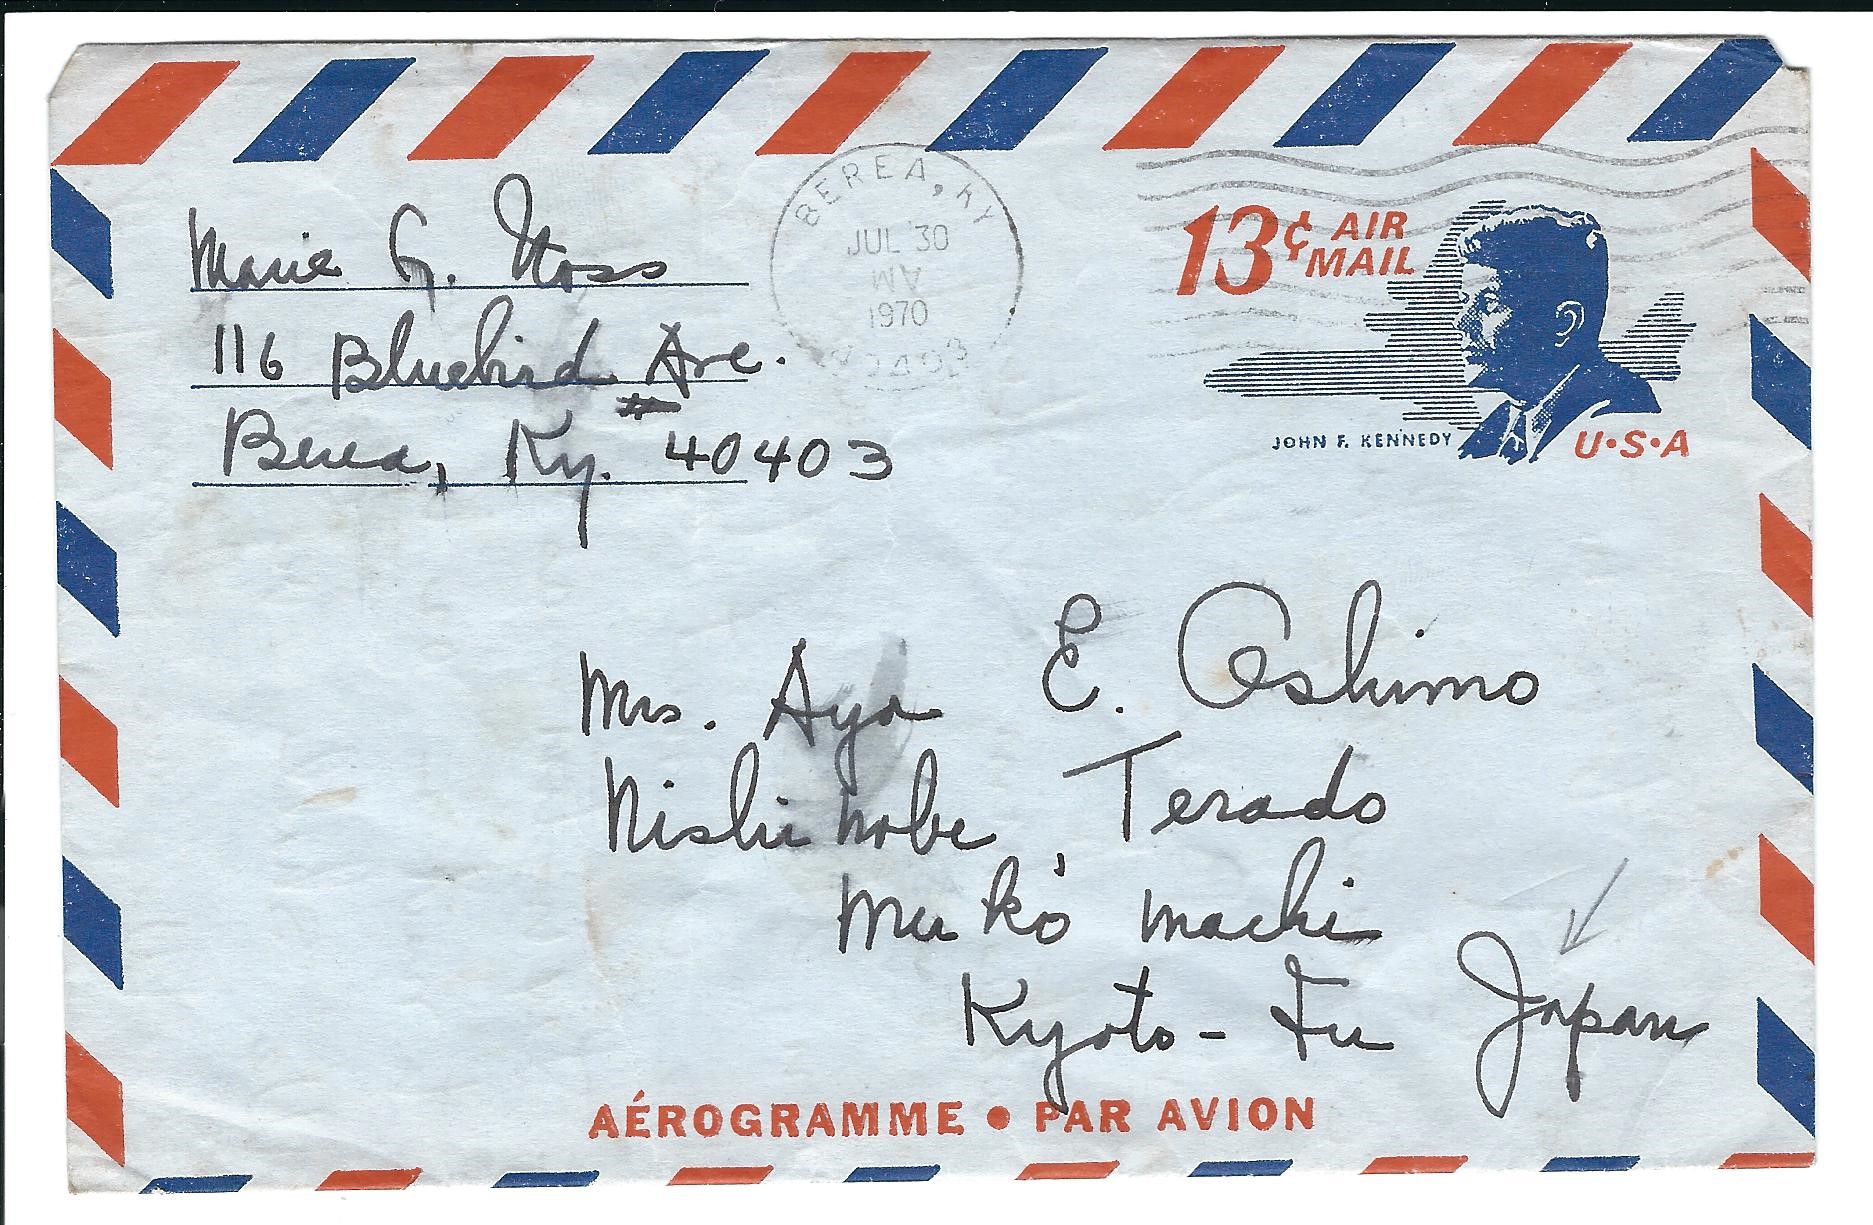 Marie G. Moss
116 Bluebird Ave.
Berea, Ky. 40403
BEREA, KY
JUL 30
1970
40403
13¢ AIR
MAIL
JOHN F. KENNEDY
U·S·A
Mrs. Aya E. Oshimo
Nishi Terado
Muko machi
Kyoto-Fu Japan
AÉROGRAMME • PAR AVION